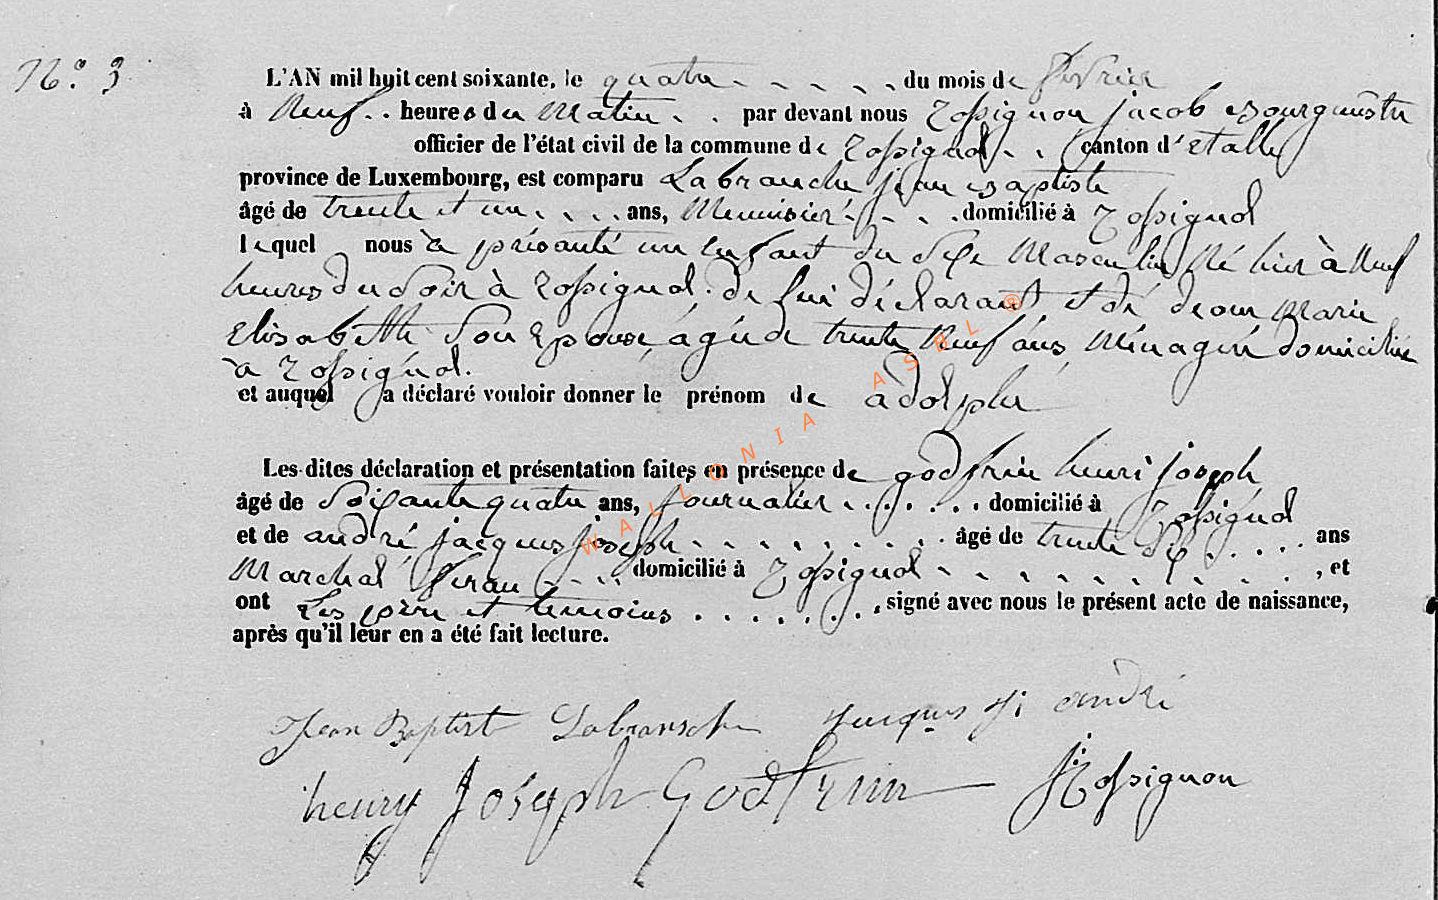 N.° 3
L'AN mil huit cent soixante, le quatre du mois de fevrier
à Neuf heures du Matin par devant nous Rossignon jacob Bourguestre
officier de l'état civil de la commune de Rossignol canton d'Etalle
province de Luxembourg, est comparu Labranche jean Baptiste
âgé de trente et un ans, Menuisier domicilié à Rossignol
lequel nous à présanté un enfant du Sexe Masculin Né hier à Neuf
heures du Soir à Rossignol. de lui déclarant et dé Marie
Elisabeth Son Epouse, agéé de trente Neuf ans, Ménagére domiciliée
à Rossignol.
et auquel a déclaré vouloir donner le prénom de adolphe
Les dites déclaration et présentation faites en présence de godfrin henri joseph
âgé de Soixante quatre ans, journalier domicilié à Rossignol
et de andré jacques joseph âgé de trente Six ans
Marchal feran domicilié à Rossignol, et
ont Les père et temoins, signé avec nous le présent acte de naissance,
après qu'il leur en a été fait lecture.
Jean Baptist Labransche Jacques J: andré
henry Joseph Godfrin J: Rossignon
WALLONIA ASBL ®